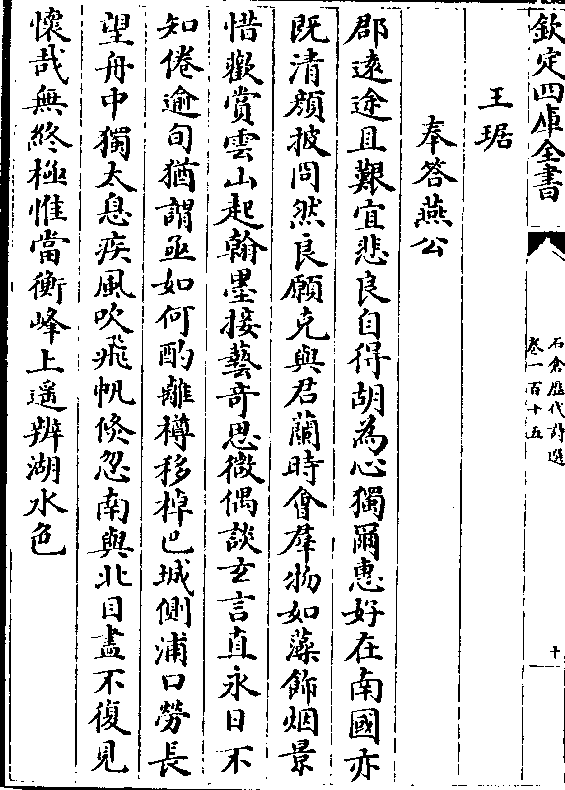 欽定四庫全書
石倉歷代詩選
卷一百十五
十
王琚
奉答燕公
郡遠途且艱宜悲良自得胡為心獨爾惠好在南國亦
既清顔披冏然良願克與君蘭時會羣物如藻飾烟景
惜歡賞雲山起翰墨接藝奇思微偶談玄言直永日不
知倦逾旬猶謂亟如何酌離樽移棹巴城側浦口勞長
望舟中獨太息疾風吹飛帆倐忽南與北目盡不復見
懷哉無終極惟當衡峰上遥辨湖水色